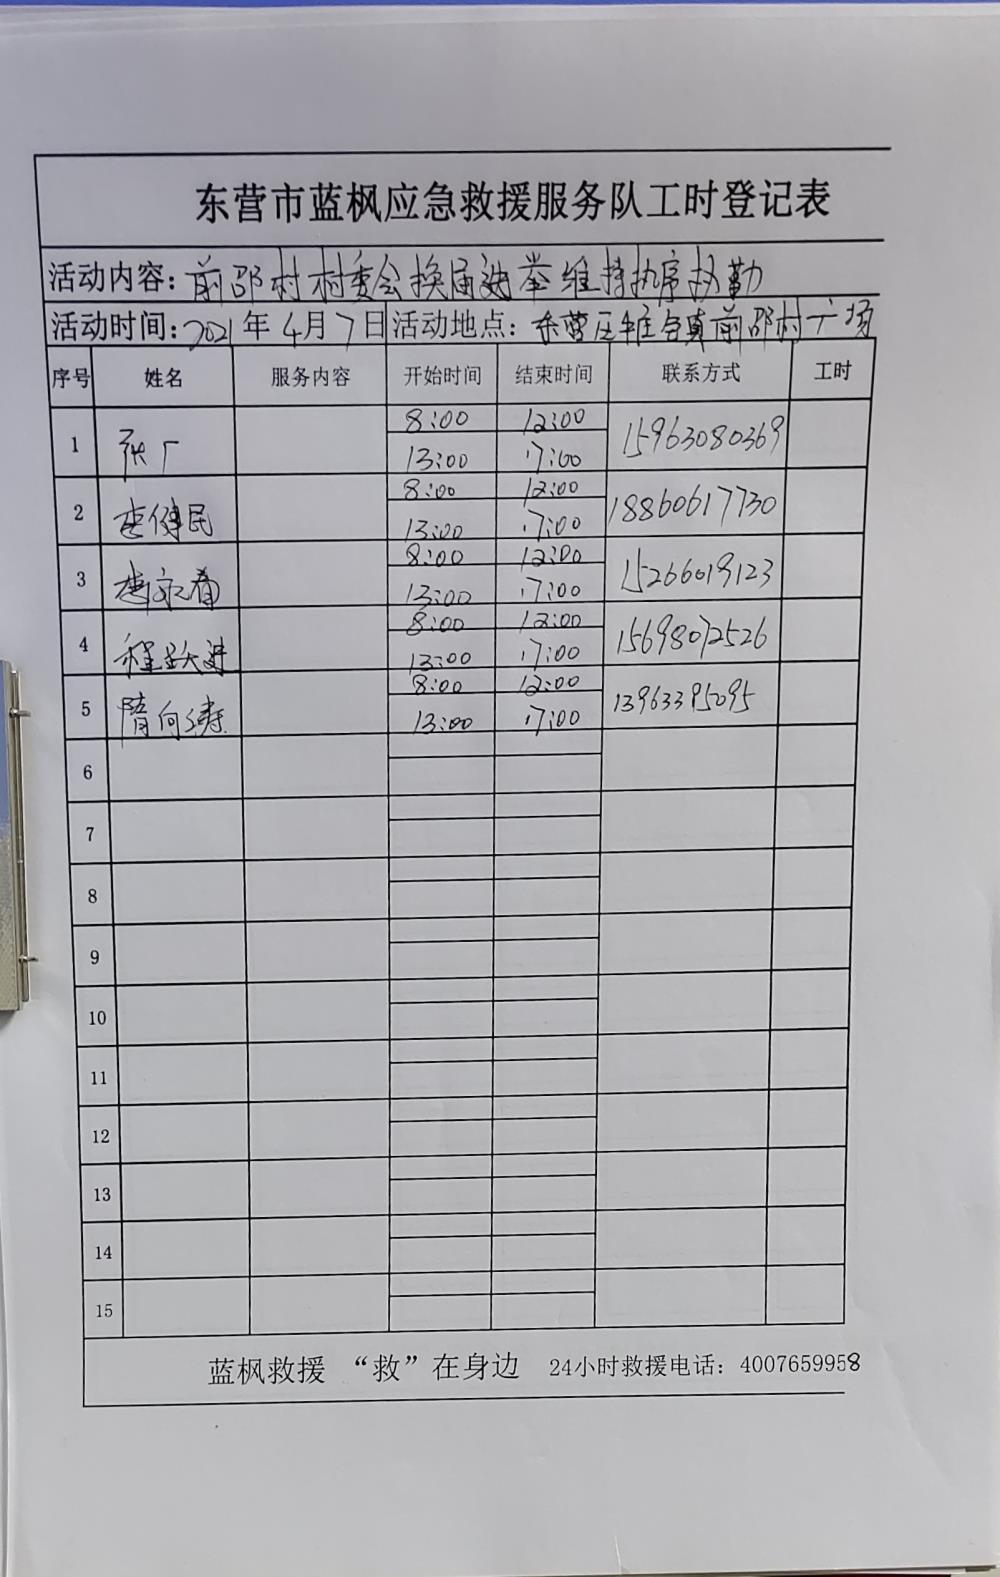 东营市蓝枫应急救援服务队工时登记表
活动内容：前邵村村委会换届选举维持执序执勤
活动时间：2021年4月7日 活动地点：东营区牛庄镇前邵村广场
序号 姓名 服务内容 开始时间 结束时间 联系方式 工时
1 张广 8:00 12:00 15963080369
13:00 17:00
2 李健民 8:00 12:00 18860617730
13:00 17:00
3 李永春 8:00 12:00 15266019123
13:00 17:00
4 程跃进 8:00 12:00 15698072526
13:00 17:00
5 隋向涛 8:00 12:00 13963395095
13:00 17:00
6
7
8
9
10
11
12
13
14
15
蓝枫救援 “救”在身边 24小时救援电话：4007659958